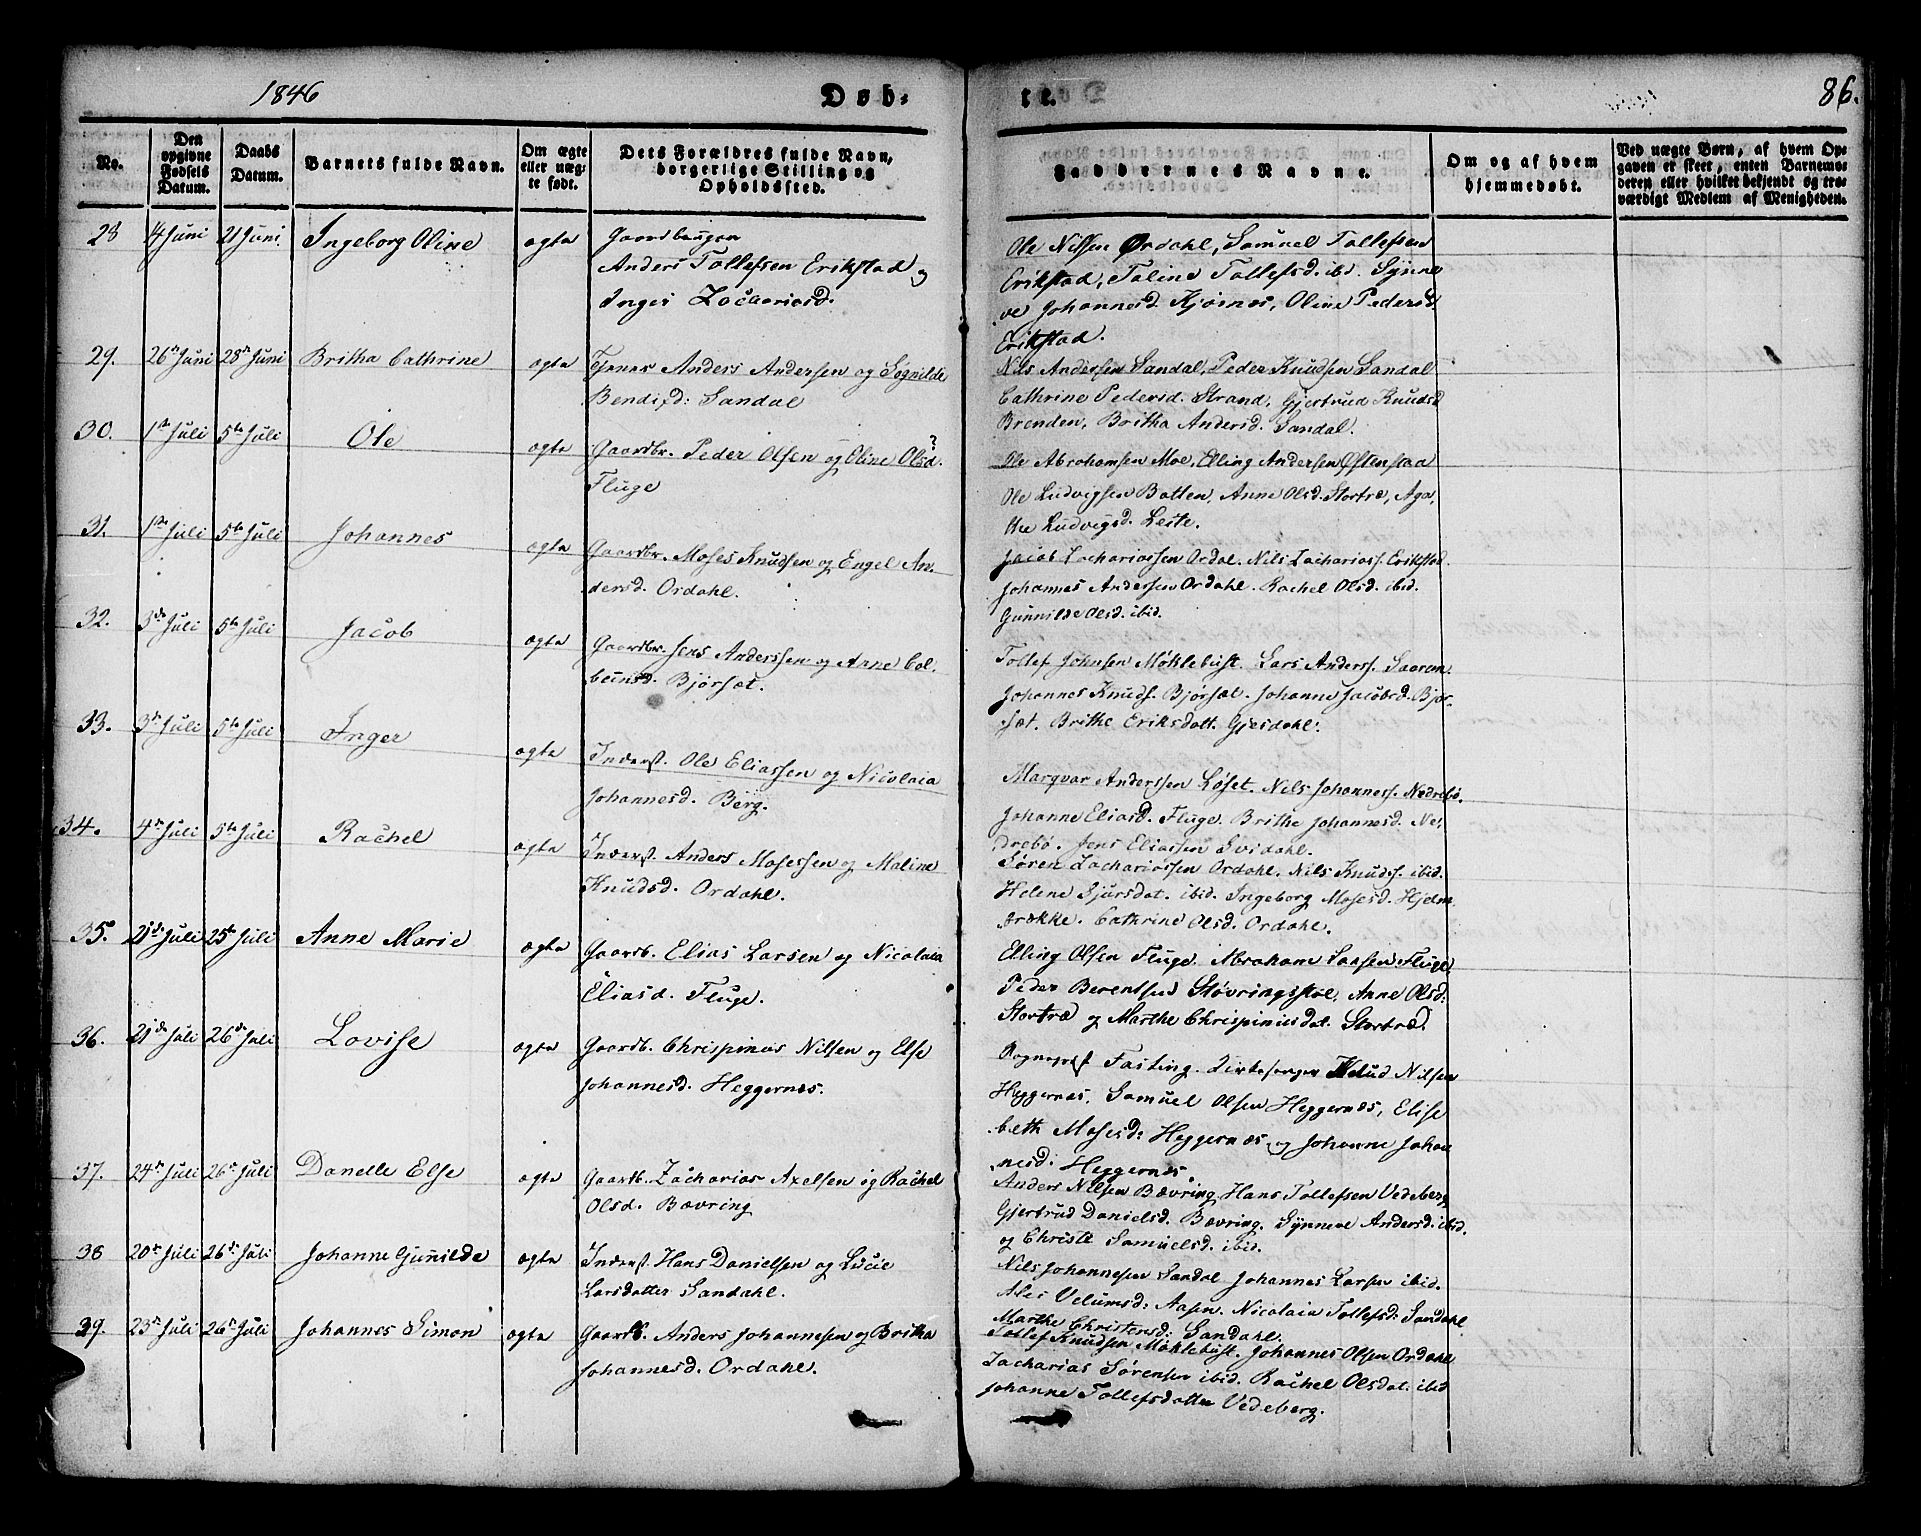 1846
Døb-
te.
86.
No.
Den opgivne Fødsels Datum.
Daabs Datum.
Barnets fulde Navn.
Om ægte eller uægte født.
Dets Forældres fulde Navn, borgerlige Stilling og Opholdssted.
Faddernes Navne.
Om og af hvem hjemmedøbt.
Ved uægte Børn, af hvem Opgaven er skeet, enten Barnemoderen eller hvilket bekjendt og troværdigt Medlem af Menigheden.
28 4 Juni 21 Juni Ingeborg Oline ægte
Anders Tollefsen Erikstad og
Inger Zachariasd.
Ole Nilsen Ordahl, Samuel Tollefsen
Erikstad, Taline Tollefsd. ibd. Synne
ve Johannesd. Kjørnes, Oline Pedersd
Erikstad.
29. 26de Juni 28de Juni Britha Cathrine ægte Tjener Anders Andersen og Sognilde
Bendixd: Sandal
Nils Andersen Sandal, Peder Knudsen Sandal
Cathrine Pedersd. Strand, Gjertrud Knudsd
Brenden, Britha Andersd. Sandal.
30. 1ste Juli 5te Juli Ole ægte Gaardbr. Peder Olsen og Oline Olsd.?
Fluge
Ole Abrahamsen Moe, Elling Andersen Østenstad
Ole Ludvigsen Botten, Anne Olsd. Stortræ, Aga,
the Ludvigsd. Leite.
31. 1ste Juli 5te Juli Johannes ægte Gaardbr. Moses Knudsen og Engel An-
dersd. Ordahl.
Jacob Zachariassen Ordal. Nils Zachariass. Erikstad.
Johannes Anderssen Ordahl. Rachel Olsd. ibid.
Gunnilde Olsd. ibid.
32. 3de Juli 5te Juli Jacob ægte Gaardbr. Jens Anderssen og Anne Col-
beensd. Bjørsæt.
Tollef Johnsen Møklebust. Lars Anderss.
Johannes Knuds. Bjørsæt. Johanne Jacobsd. Bjør-
sæt. Brithe Eriksdatt. Gjesdahl.
33. 3de Juli 5te Juli Inger ægte Inderst. Ole Eliassen og Nicolaia
Johannesd. Berg.
Marqvar Anderssen Løset. Nils Johanness. Nedrebø.
Johanne Eliasd. Fluge. Brithe Johannesd. Ne,
drebø. Jens Eliassen Svidahl.
34. 4de Juli 5te Juli Rachel ægte Inderst. Anders Mosessen og Maline
Knudsd. Ordahl.
Søren Zachariassen Ordahl. Nils Knuds. ibid.
Helene Sjursdat. ibid. Ingeborg Mosesd. Hjelm
brække. Cathrine Olsd. Ordahl.
35. 21de Juli 25te Juli Anne Marie ægte Gaardb. Elias Larsen og Nicolaia
Eliasd. Fluge.
Elling Olsen Fluge. Abraham Laasen Fluge,
Peder Berentsen Støvringsstøl, Anne Olsd:
Stortræ og Marthe Chrispiniusdat. Stortræ.
36. 21de Juli 26de Juli Lovise ægte Gaardb. Chrispinus Nilsen og Else
Johannesd. Heggernæs.
Sognepræst Fasting. Kirkesanger Knud Nilsen
Heggernæs, Samuel Olsen Heggernæs, Elise
beth Mosesd: Heggernæs og Johanne Johan
nesd: Heggernæs.
37. 24de Juli 26de Juli Danelle Else ægte Gaardb. Zacharias Axelsen og Rachel
Olsd. Bævring
Anders Nilsen Bævring, Hans Tollefsen Vedeberg
Gjertrud Danielsd. Bævring. Synneve Andersd. ibid.
og Christi Samuelsd. ibid.
38 20de Juli 26de Juli Johanne Gunnilde ægte Inderst. Hans Danielsen og Lucie
Larsdatter Sandahl.
Nils Johannesen Sandal Johannes Larsen ibid.
Ales Velumsd: Aasen. Nicolaia Tollefsd: Sandahl.
Marthe Christensd: Sandahl.
39. 23de Juli 26de Juli Johannes Simon ægte Gaardb. Anders Johannesen og Britha
Johannesd. Ordahl.
Tollef Knudsen Møklebust. Johannes Olsen Ordahl
Zacharias Sørensen ibid. Rachel Olsdat. ibid
Johanne Tollefsdatter Vedeberg.